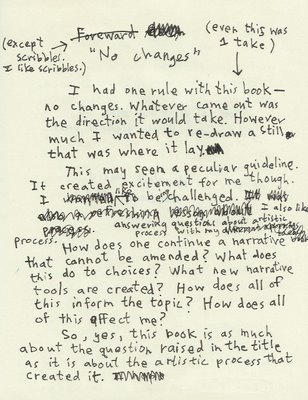 (except
scribbles.
I like scribbles.)
Foreward
(even this was
1 take)
"No changes"
I had one rule with this book—
no changes. Whatever came out was
the direction it would take. However
much I wanted to re-draw a still
that was where it lay.
This may seen a peculiar guideline.
It created excitement for me though.
I like to be challenged. It was
also a refreshing I also like
answering questions about artistic
process with my
process.
How does one continue a narrative
that cannot be amended? What does
this do to choices? What new narrative
tools are created? How does all of
this inform the topic? How does all
of this effect me?
So, yes, this book is as much
about the question raised in the title
as it is about the artistic process that
created it.